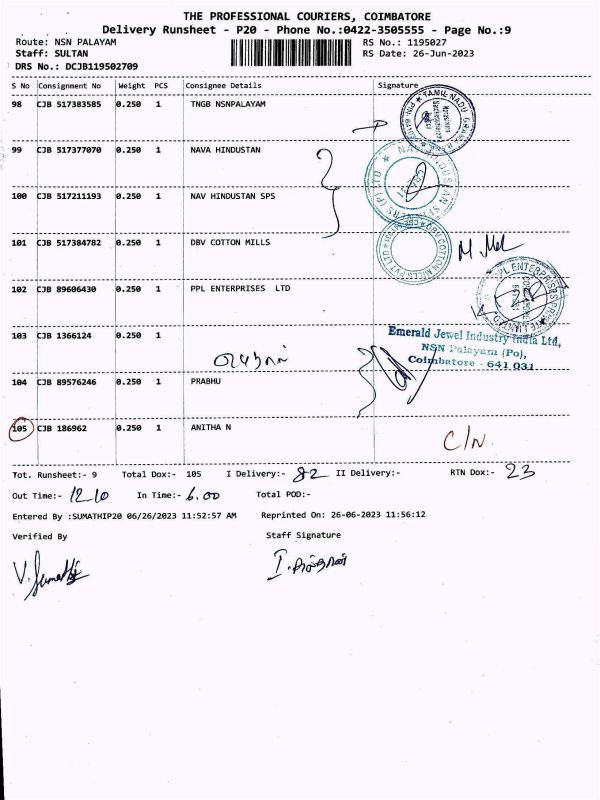 THE PROFESSIONAL COURIERS, COIMBATORE
Delivery Runsheet - P20 - Phone No.:0422-3505555 - Page No.:9
Route: NSN PALAYAM RS No.: 1195027
Staff: SULTAN RS Date: 26-Jun-2023
DRS No.: DCJB119502709
S No Consignment No Weight PCS Consignee Details Signature
98 CJB 517383585 0.250 1 TNGB NSNPALAYAM
TAMIL NADU
99 CJB 517377070 0.250 1 NAVA HINDUSTAN
100 CJB 517211193 0.250 1 NAV HINDUSTAN SPS
101 CJB 517384782 0.250 1 DBV COTTON MILLS
DBV COTTON MILLS PVT LTD
102 CJB 89606430 0.250 1 PPL ENTERPRISES LTD
PPL ENTERPRISES PRIVATE LIMITED
103 CJB 1366124 0.250 1
Emerald Jewel Industry India Ltd,
NSN Palayam (Po),
Coimbatore - 641 031.
104 CJB 89576246 0.250 1 PRABHU
105 CJB 186962 0.250 1 ANITHA N
C/N.
Tot. Runsheet:- 9 Total Dox:- 105 I Delivery:- 82 II Delivery:- RTN Dox:- 23
Out Time:- 12.10 In Time:- 6.00 Total POD:-
Entered By :SUMATHIP20 06/26/2023 11:52:57 AM Reprinted On: 26-06-2023 11:56:12
Verified By Staff Signature
V. Sumathi